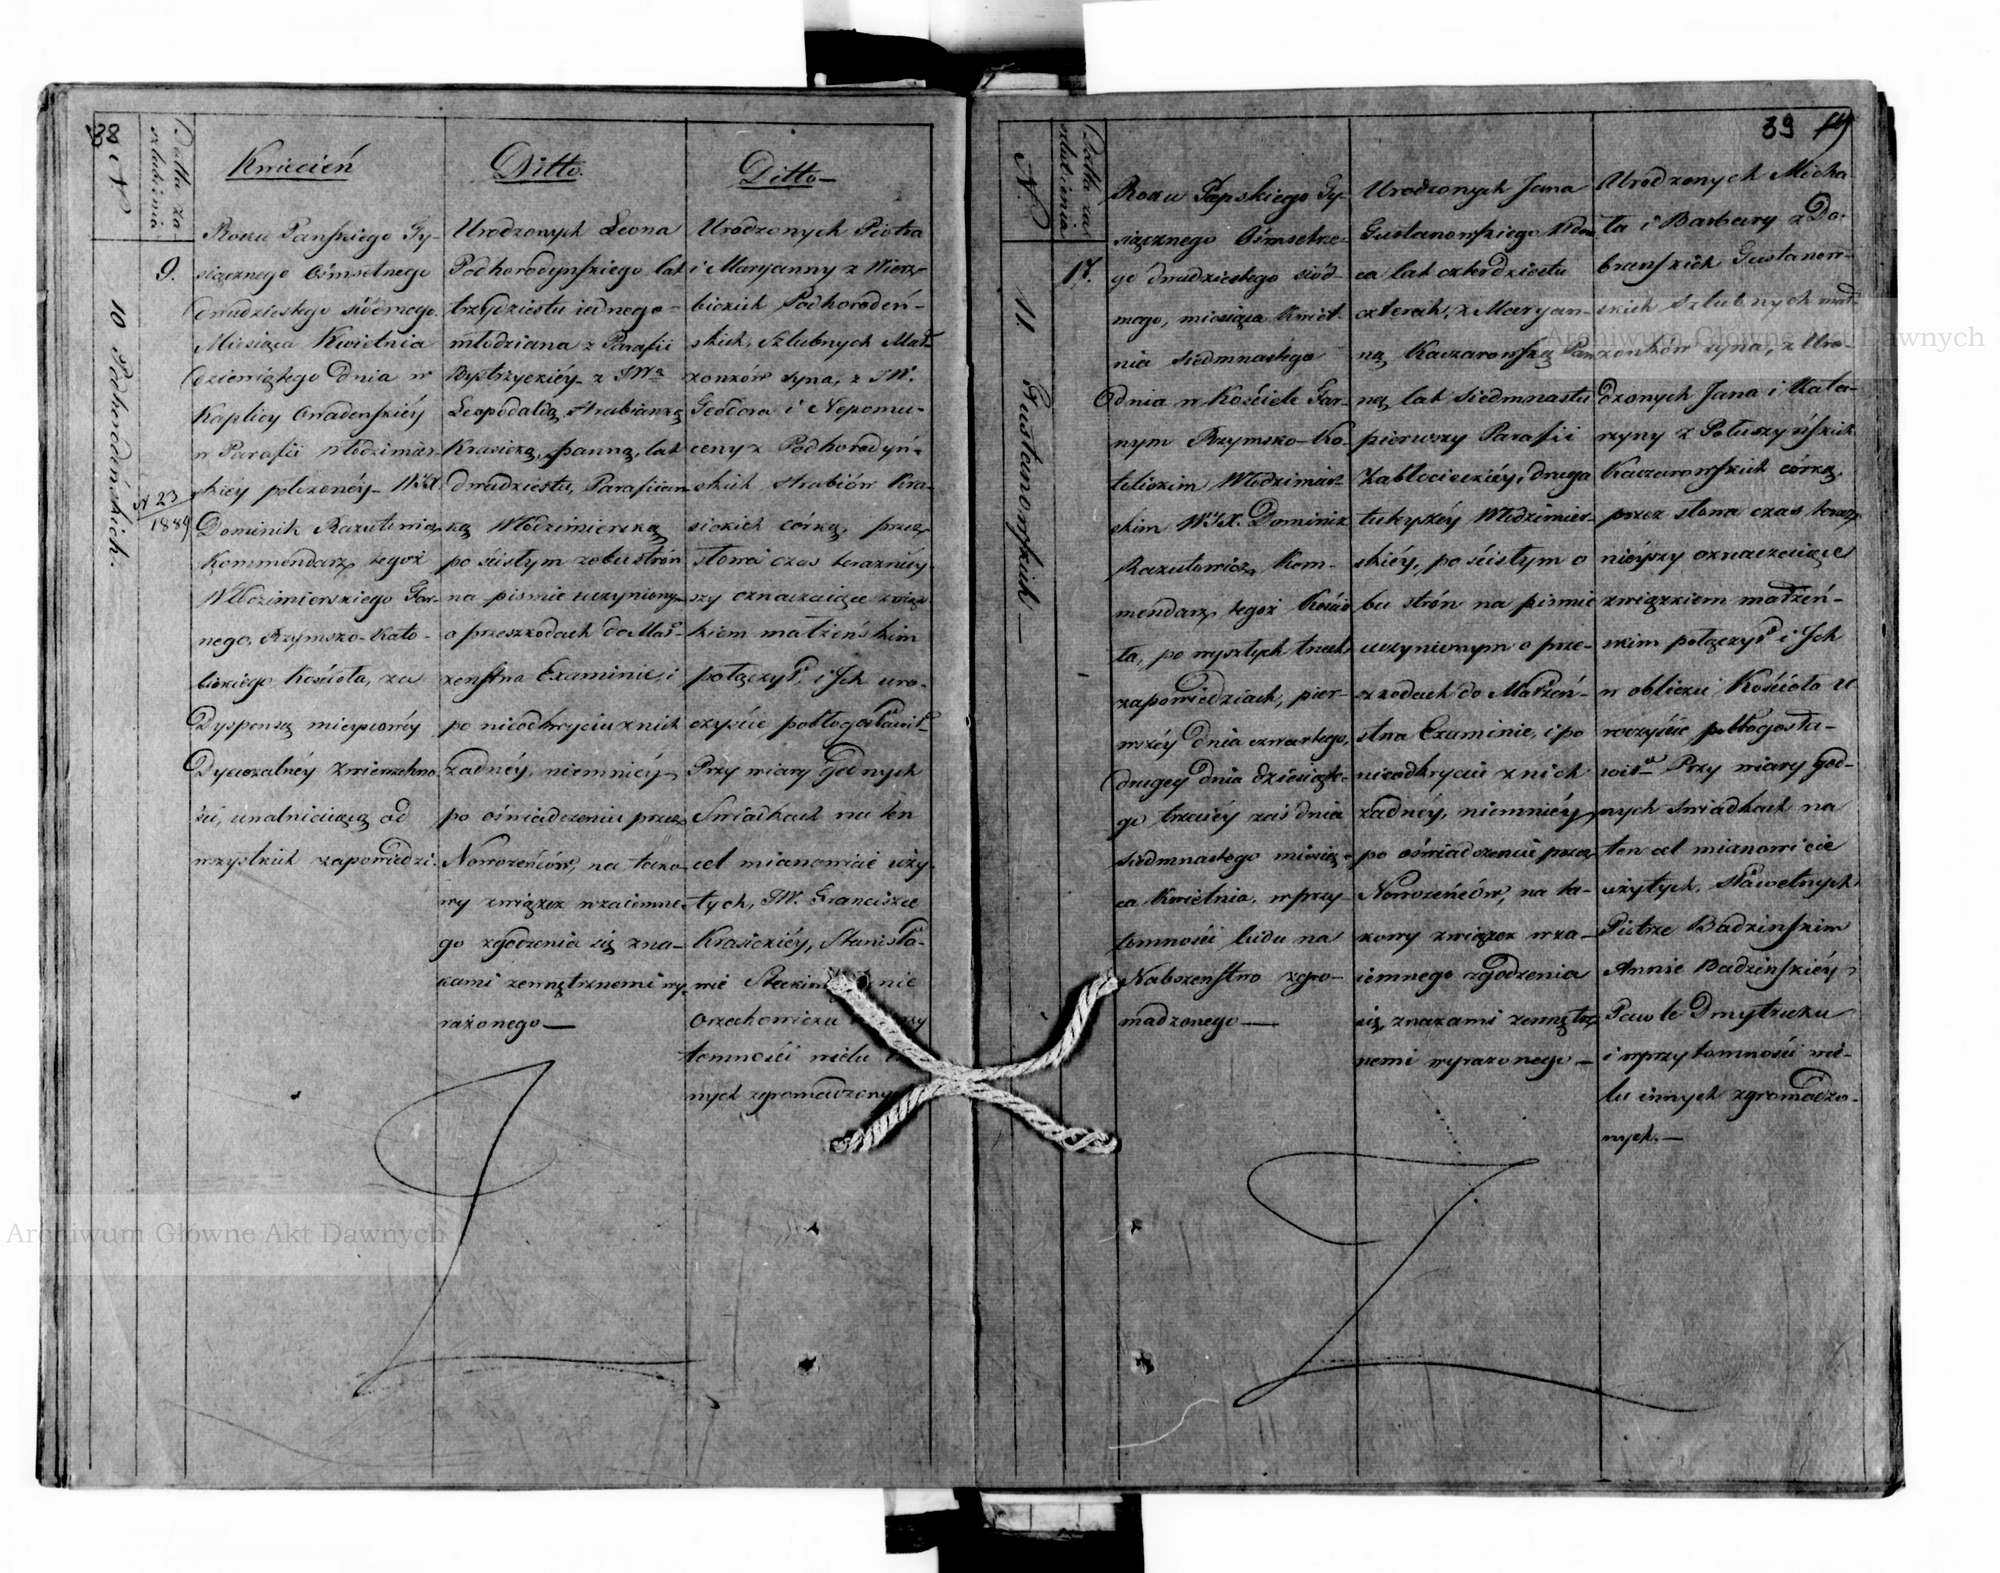 38
N
Datta za-
szlubienia.
Kwiecień
9.
10 Podhorodeńskich.
N 23
1889
Roku Pańskiego Ty-
siącznego Ośmsetnego
dwudziestego siódmego
Miesiąca Kwietnia
dziewiątego dnia w
Kaplicy
w Parafii Włodzimir-
skiéy położonéy
Dominik Razutowicz
Kommendarz tegoż
Włodzimierskiego Far-
nego, Rzymsko-Kato-
lickiego Kościoła, za
Dyspensą
Dyecezalnéy Zwierzchno
ści, uwalniaiącą od
wszystkich zapowiedzi.
Ditto.
Urodzonych Leona
Podhorodyńskiego lat
trzydziestu iednego
młodziana z Parafii
z JWą
Leopoldą Hrabianką
Krasicką, panną, lat
dwudziestu, Parafiian
ką Włodzimierską
po ścisłym zobu strón
na piśmie uczyniony
o przeszkodach do Mał-
żeństwa Examinie, i
po nieodkryciu z nich
żadnéy, niemniéy
po oświadczeniu przez
Nowożeńców, na tako-
wy związek wzaiemne-
go zgodzenia się zna-
kami zewnętrznemi wy
rażonego—
Ditto—
Urodzonych Piotra
i Maryanny z Wierz-
bickich Podhorodeń-
skich, Szlubnych Mał-
żonków syna, z JW.
Teodora i Nepomu-
ceny z Podhorodyń-
skich Hrabiów Kra-
sickich córką, przez
słowa czas teraźniéy-
szy oznaczaiące związ
kiem małżeńskim
połączył, i Ich uro-
czyście pobłogosławił
Przy wiary godnych
Swiadkach na ten
cel mianowicie uży-
tych, JW. Franciszce
Krasickiéy, Stanisła-
wie
Orzechowiczu
tomności wielu
nych zgromadzony
39
N.
Datta za
szlubienia
17.
11. Gustanowskich—
Roku Pańskiego Ty-
siącznego Ośmsetne-
go dwudziestego siód-
mego, miesiąca Kwiet-
nia siedmnastego
dnia w Kościele Far-
nym Rzymsko-Ka-
tolickim Włodzimir-
skim W.JX. Dominik
Razutowicz Kom-
mendarz tegoż Kościo
ła, po wyszłych trzech
zapowiedziach, pier-
wszéy dnia czwartego,
drugiey dnia dziesiąte-
go trzeciéy zaś dnia
siedmnastego miesią-
ca Kwietnia, w przy-
tomności ludu na
Nabożeństwo zgro-
madzonego—
Urodzonych Jana
Gustanowskiego Wdow
ca lat czterdziestu
czterech, z Maryan-
ną Kaczarowską Pan
ną lat siedmnastu
pierwszy Parafii
Zabłocieckiéy, druga
tuteyszéy Włodzimier-
skiéy, po ścisłym o
bu strón na piśmie
uczynionym o prze-
szkodach do Małżeń-
stwa Examinie, i po
nieodkryciu z nich
żadnéy, niemniéy
po oświadczeniu przez
Nowożeńców, na ta-
kowy związek wza-
iemnego zgodzenia
się, znakami zewnętrz
nemi wyrażonego—
Urodzonych Micha
ła i Barbary z Do-
brańskich Gustanow-
skich szlubnych mał-
żonków syna, z Uro-
dzonych Jana i Kata-
rzyny z Potuszyńskich
Kaczarowskich córką,
przez słowa czas teraz
niéyszy oznaczaiące
związkiem małżeń-
skim połączył i Ich
w obliczu Kościoła u
roczyście pobłogosła-
wił Przy wiary god-
nych świadkach na
ten cel mianowicie
użytych, sławetnych
Piotrze Badzińskim
Annie Badzińskiéy
Pawle Dmytruku
i w przytomności wie-
lu innych zgromadzo-
nych.—
Archiwum Główne Akt Dawnych
Archiwum Główne Akt Dawnych